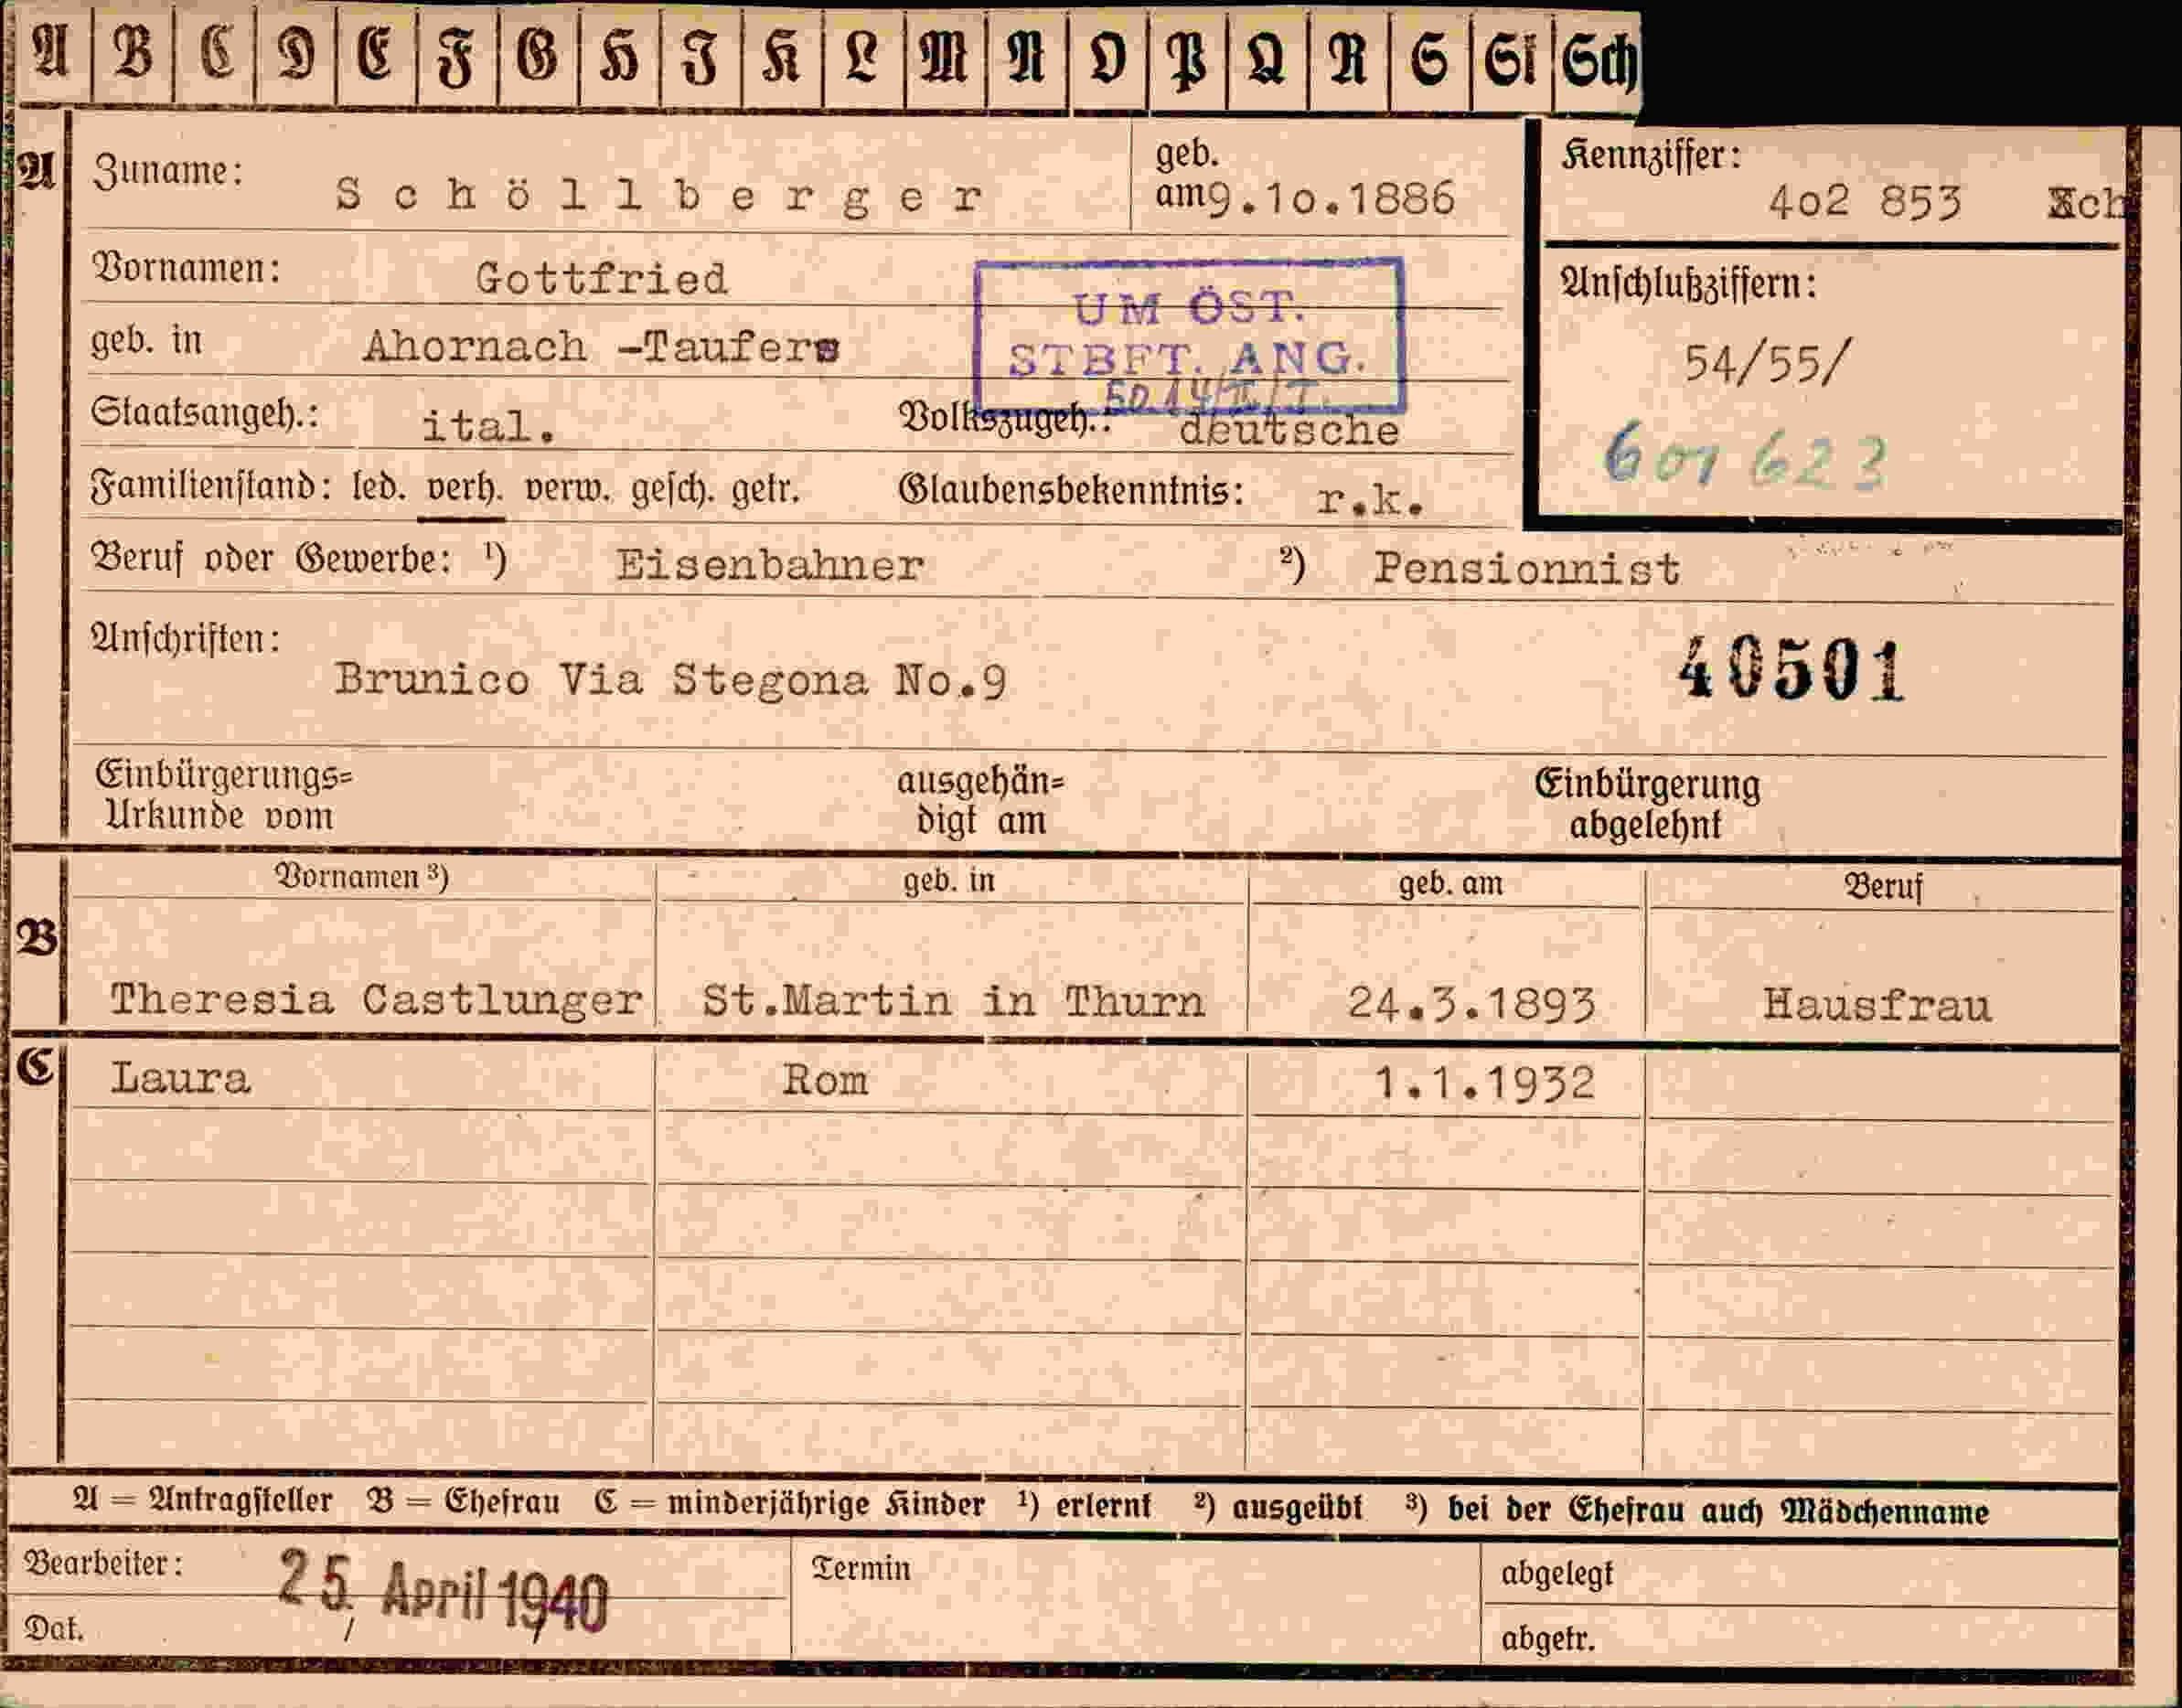 A B C D E F G H I K L M N O P Q R S St Sch
A
Zuname: Schöllberger geb. am 9.10.1886
Kennziffer: 402 853 Sch
Vornamen: Gottfried
UM ÖST. STBFT. ANG.
Anschlußziffern: 54/55/
601 623
geb. in Ahornach -Taufers
Staatsangeh.: ital. Volkszugeh.: deutsche
Familienstand: led. verh. verw. gesch. getr. Glaubensbekenntnis: r.k.
Beruf oder Gewerbe: ¹) Eisenbahner ²) Pensionnist
Anschriften:
Brunico Via Stegona No.9
40501
Einbürgerungs=
Urkunde vom
ausgehän=
digt am
Einbürgerung
abgelehnt
B
Vornamen ³) geb. in geb. am Beruf
Theresia Castlunger St.Martin in Thurn 24.3.1893 Hausfrau
C
Laura Rom 1.1.1932
A = Antragsteller B = Ehefrau C = minderjährige Kinder ¹) erlernt ²) ausgeübt ³) bei der Ehefrau auch Mädchenname
Bearbeiter:
25. April 1940
Dat.
Termin
abgelegt
abgetr.